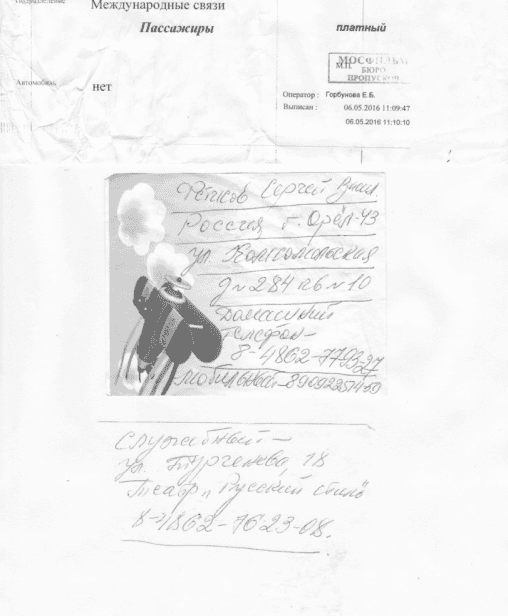 Подразделение
Международные связи
Пассажиры
платный
МОСФИЛЬМ
М.П.
БЮРО
ПРОПУСКОВ
Автомобиль
нет
Оператор : Горбунова Е.Б.
Выписан : 06.05.2016 11:09:47
06.05.2016 11:10:10
Сергей
Россия г. Орёл-43
ул. Комсомольская
д № 284 кв № 10
Домашний
телефон-
8-4862-779327
мобильный-
Служебный-
ул. Тургенева, 18
Театр "Русский стиль"
8-4862-76-23-08.